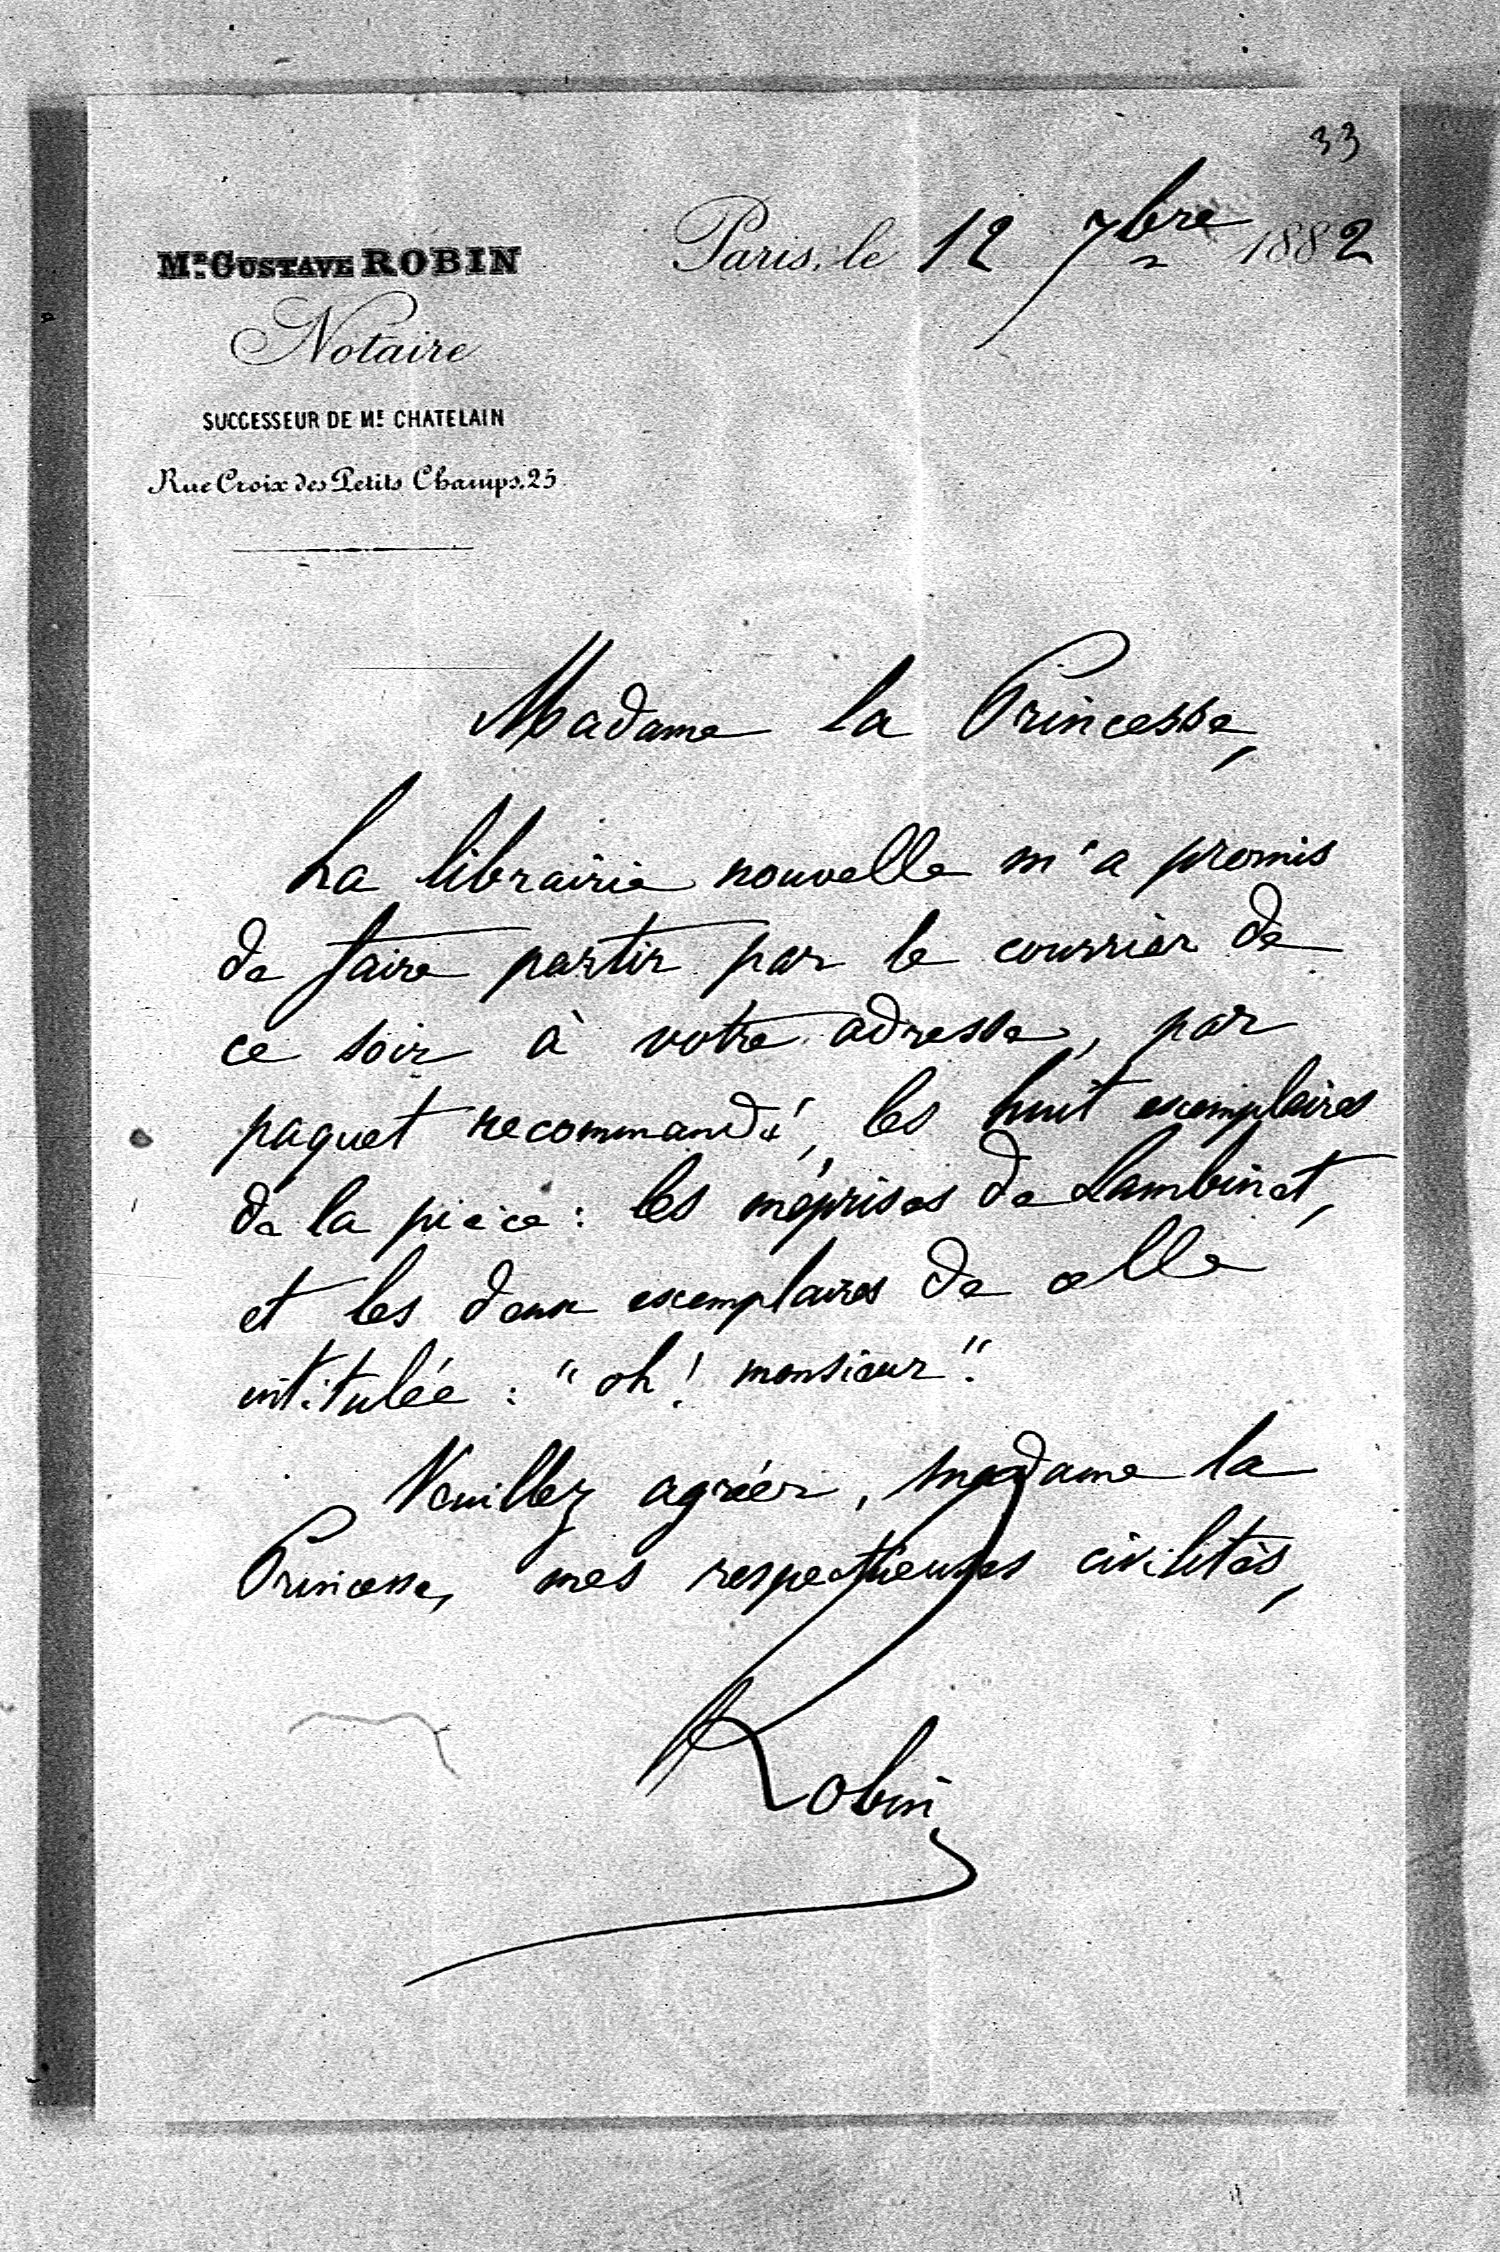 33
Paris, le 12 7bre 1882
ME GUSTAVE ROBIN
Notaire
SUCCESSEUR DE ME CHATELAIN
Rue Croix des Petits Champs, 25
Madame la Princesse,
La librairie nouvelle m'a promis
de faire partir par le courrier de
ce soir à votre adresse, par
paquet recommandé, les huit exemplaires
de la pièce : les méprises de Lambinet,
et les deux exemplaires de celle
intitulée : "oh ! monsieur".
Veuillez agréer, madame la
Princesse, mes respectueuses civilités,
Robin